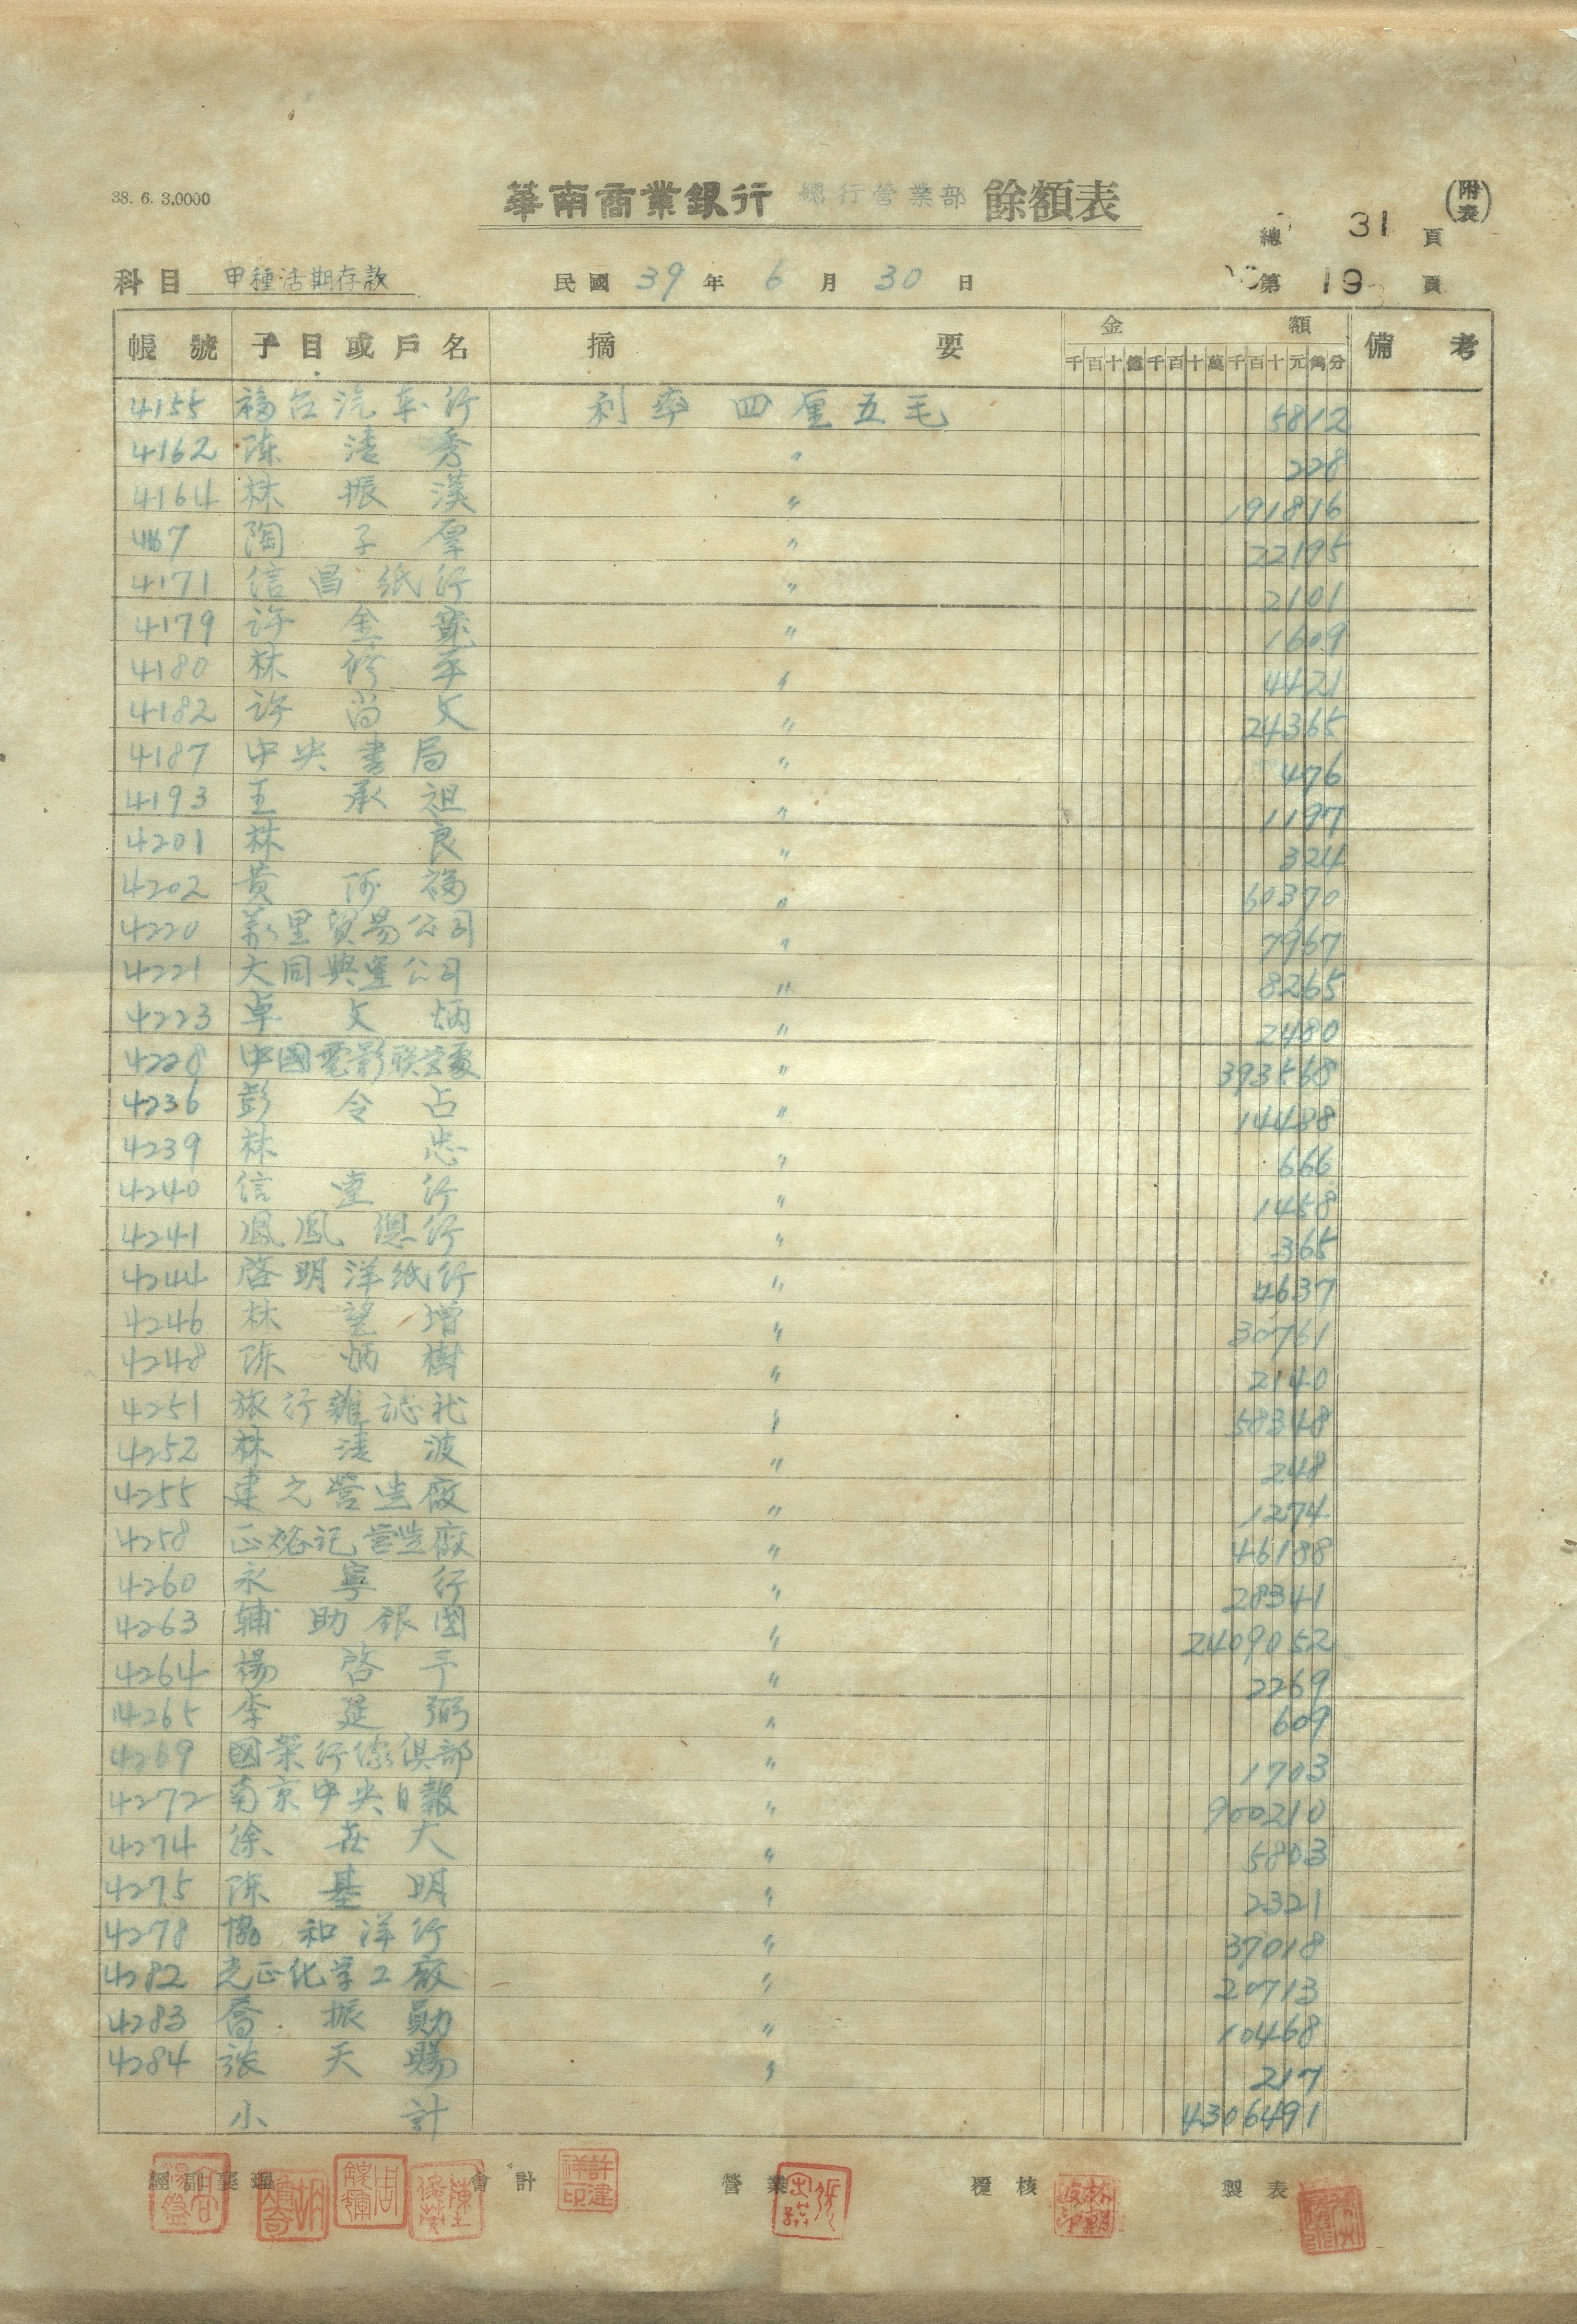 38. 6. 3.0000
華南商業銀行 總行營業部 餘額表 (附表)
總 31 頁
科目 甲種活期存款 民國 39 年 6 月 30 日 第 19 頁
帳號 子目或戶名 摘要 金額 備考
千百十億千百十萬千百十元角分
4155 福台汽车行 利率四厘五毛 5812
4162 陈清秀 〃 228
4164 林振漢 〃 191816
4167 陶子厚 〃 22195
4171 信昌纸行 〃 2101
4179 许金 〃 1609
4180 林 〃 4421
4182 许尚文 〃 24365
4187 中央書局 〃 476
4193 王承祖 〃 1197
4201 林良 〃 324
4202 黄阿福 〃 60370
4220 萬里貿易公司 〃 7967
4221 大同興業公司 〃 8265
4223 卓文炳 〃 2480
4228 中國電影 〃 393568
4236 彭令占 〃 14488
4239 林忠 〃 666
4240 信 行 〃 1458
4241 行 〃 365
4244 啓明洋纸行 〃 4637
4246 林望增 〃 30761
4248 陈炳樹 〃 2140
4251 旅行雜誌社 〃 58348
4252 林清波 〃 248
4255 建元營造廠 〃 1274
4258 正裕记营造廠 〃 46188
4260 永寧行 〃 28341
4263 輔助銀團 〃 2409052
4264 楊啓 〃 2269
4265 李延弼 〃 609
4269 國 行 俱部 〃 1703
4272 南京中央日報 〃 900210
4274 徐 大 〃 5803
4275 陈基明 〃 2321
4278 協和洋行 〃 37018
4282 光正化学工廠 〃 20713
4283 喬振勛 〃 10468
4284 張天賜 〃 217
小計 4306491
經副襄理 會計 營業 覆核 製表
許建祥印